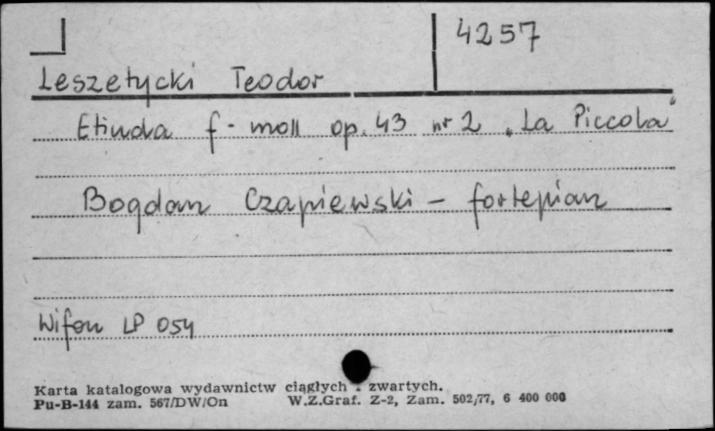 4257
Leszetycki Teodor
Etiuda f-moll op. 43 nr 2 „La Piccola"
Bogdan Czapiewski - fortepian
Wifon LP 054
Karta katalogowa wydawnictw ciągłych i zwartych.
Pu-B-144 zam. 567/DW/On W.Z.Graf. Z-2, Zam. 502/77, 6 400 000